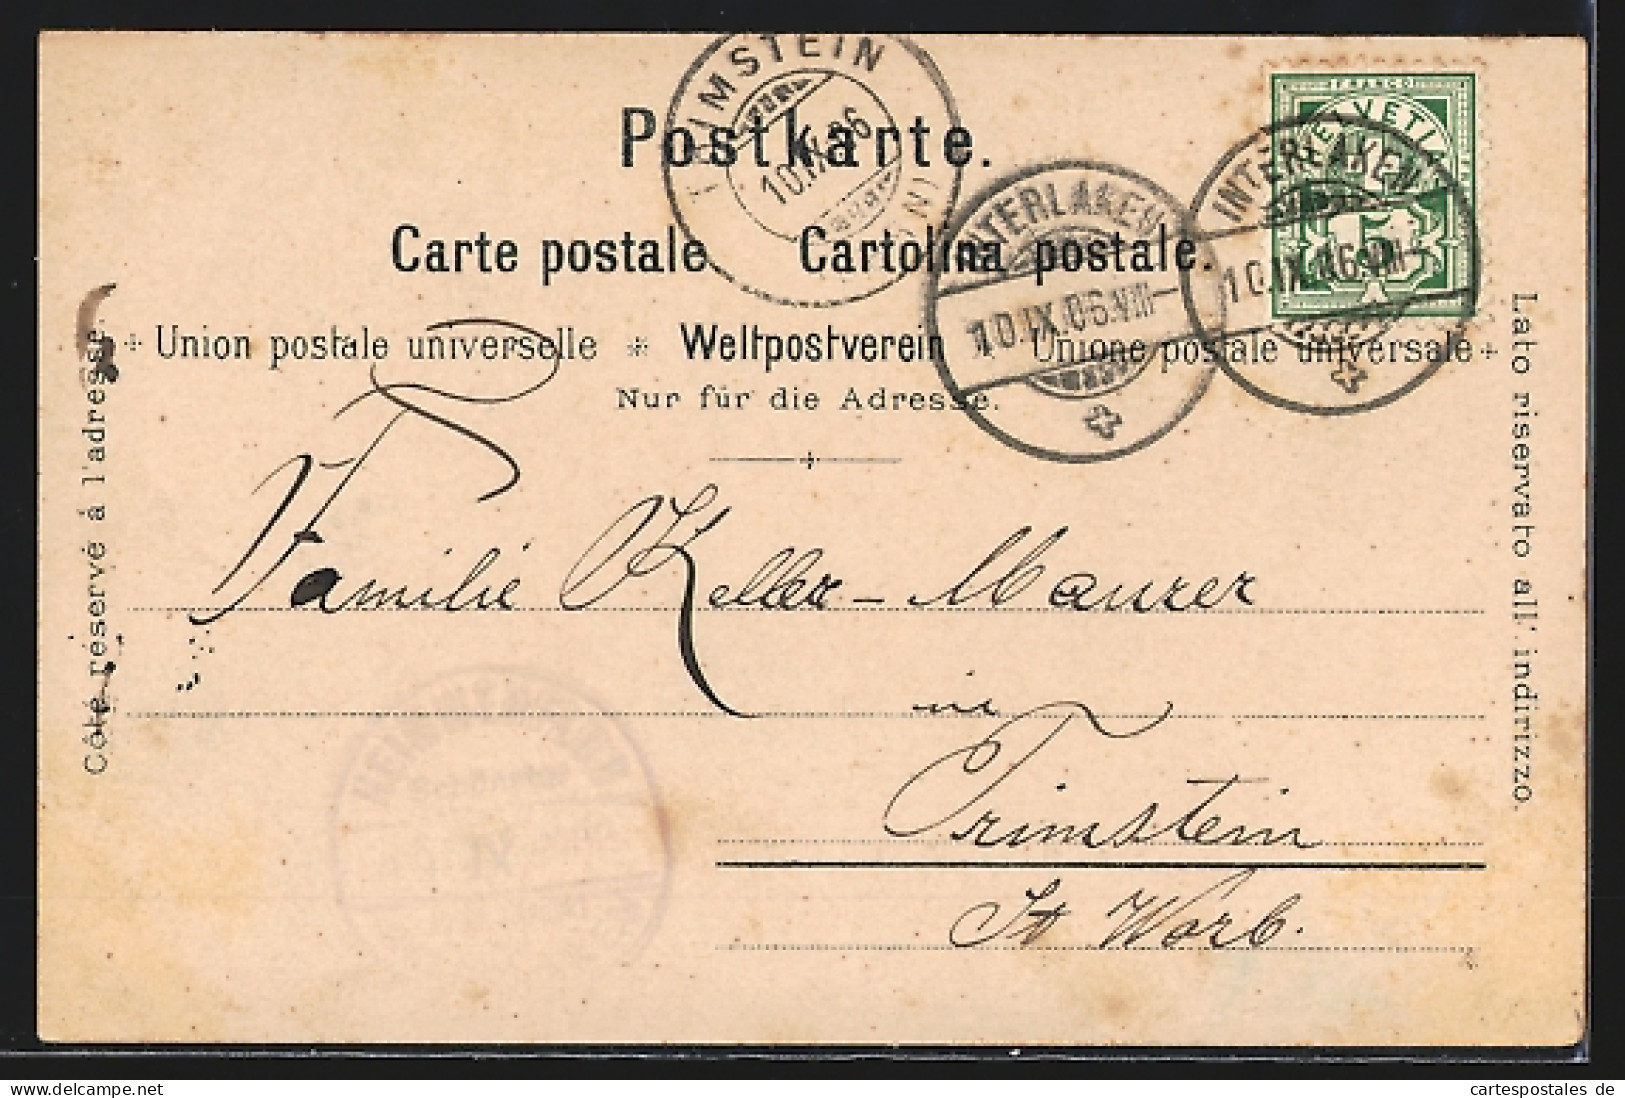 TRIMSTEIN
10.IX.06
Postkarte.
FRANCO
HELVETIA
INTERLAKEN
10.IX.06.VIII–
INTERLAKEN
10.IX.06.VIII–
Carte postale. Cartolina postale.
Union postale universelle * Weltpostverein * Unione postale universale
Nur für die Adresse.
Côté réservé à l'adresse.
Lato riservato all' indirizzo.
Familie Keller-Maurer
in
Trimstein
St Worb.
IV
cartespostales de